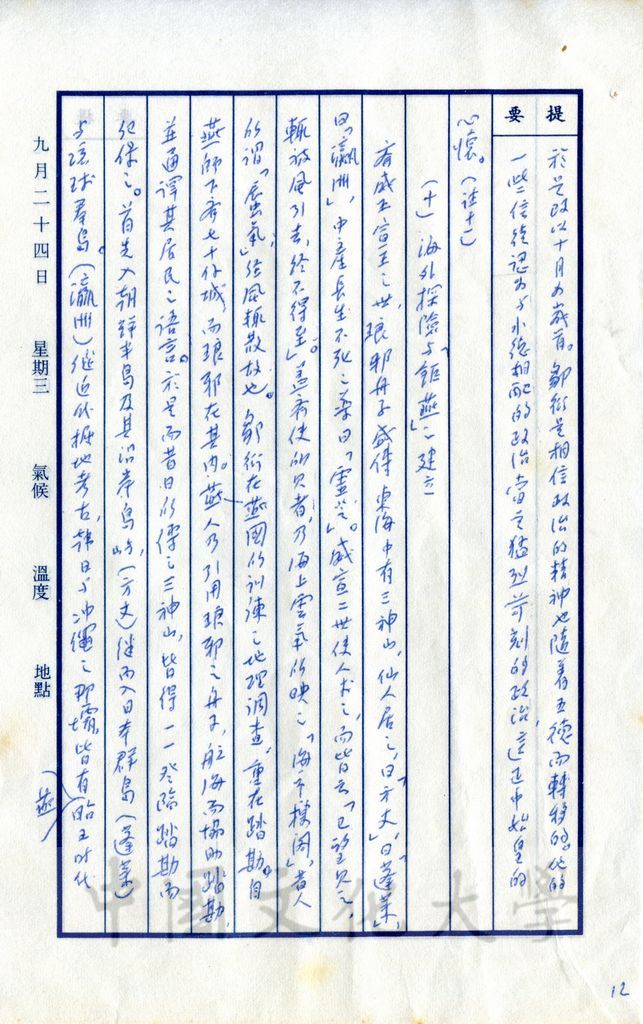 提要
於是改以十月為歲首。鄒衍是相信政治的精神也隨着五德而轉移的。他的
一些信徒認為與水德相配的政治當是猛烈苛刻的政治,這正中始皇的
心懷。(註十一)
(十)海外探險與「鉅燕」之建立
齊威王宣王之世,琅邪舟子盛傳東海中有三神山,仙人居之,曰「方丈」,曰「蓬萊」,
曰「瀛洲」,中產長生不死之藥曰「靈芝」。威宣二世使人求之,而皆云「已望見之,
輒被風引去,終不得至」。蓋齊使所見者乃海上雲氣所映之「海市樓閣」,昔人
所謂「蜃氣」,經風輒散故也。鄒衍在燕國所訓練之地理調查,重在踏勘。自
燕師下齊七十餘城,而琅邪在其內。燕人乃引用琅邪之舟子,航海而協助踏勘,
並通譯其居民之語言。於是而昔日所傳之三神山,皆得一一登臨踏勘而
紀錄之。首先入朝鮮半島及其沿岸島嶼,(方丈)繼而入日本群島(蓬萊)
與琉球羣島。(瀛洲)從近代掘地考古,韓日與沖繩之那霸,皆有昭王時代
(燕)
九月二十四日 星期三 氣候 溫度 地點
中國文化大學
12